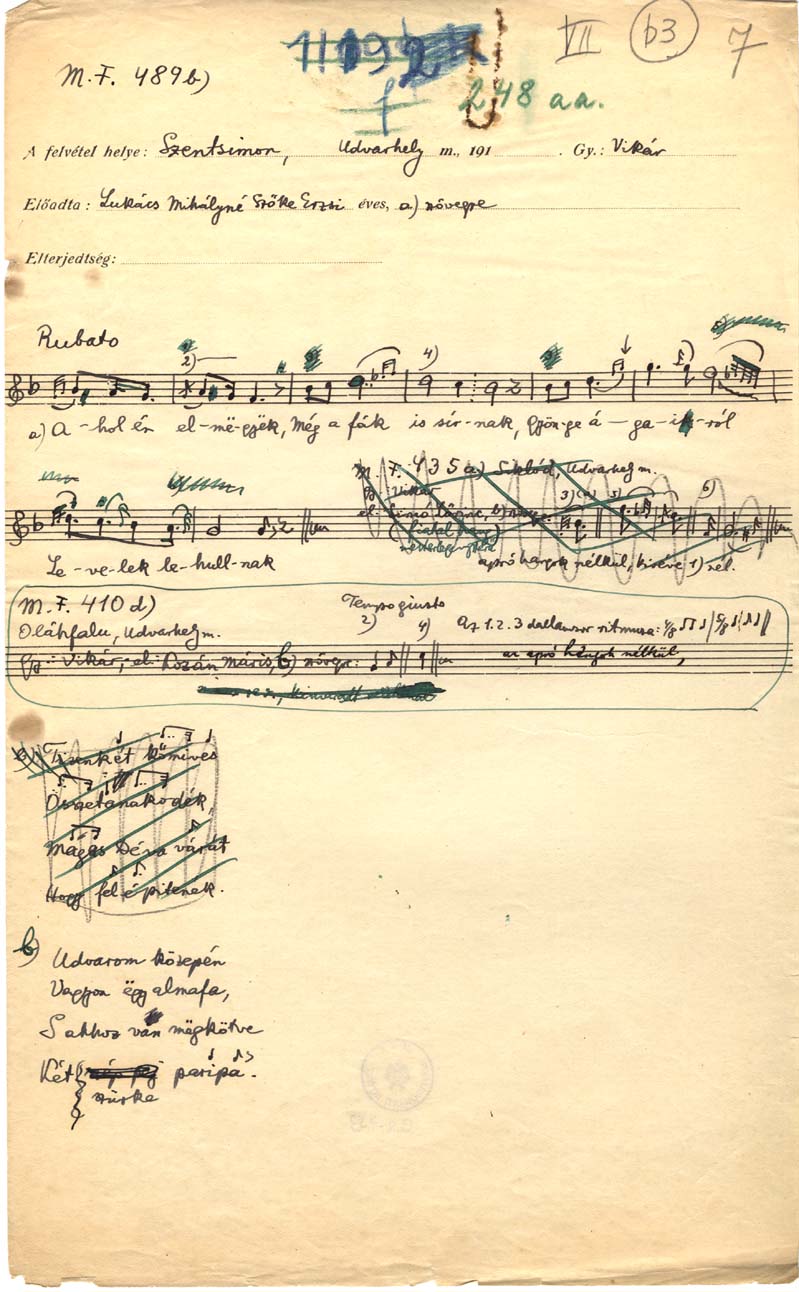 VII b3 7
M.F. 489b)
248 aa.
A felvétel helye: Szentsimon, Udvarhely m., 191 . Gy.: Vikár
Előadta: Lukács Mihályné Szőke Erzsi éves, a) nővegre
Elterjedtség:
Rubato
2) 4)
a) A-hol én el-më-gyëk, Még a fák is sír-nak, Gyön-ge á-ga-ik-ról
M.F. 435 a) Siklód, Udvarhely m.
Gy. Vikár
3) 5) 6)
apró hangok nélkül, kivéve 1) nél.
Le-ve-lek le-hull-nak
M.F. 410 d) Tempo giusto
Oláhfalu, Udvarhely m. 2) 4) Az 1. 2. 3 dallamsor ritmusa:
Gy: Vikár, el: Lozán Máris, b) nővegr: az apró hangok nélkül,
Tizenkét kőmives
Összetanakodék,
Magas Déva várát
Hogy felépitenek.
b) Udvarom közepén
Vagyon ëgy almafa,
S ahhoz van mëgkötve
Két paripa.
szürke